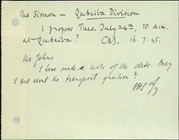 Mr Simson - Qutuiba Division
I propose Tues. July 24th, 10 a.m.
at Qutuiba? 16.7.45.
Mr Johns
I have made a note of the date. May
I see about the transport question?